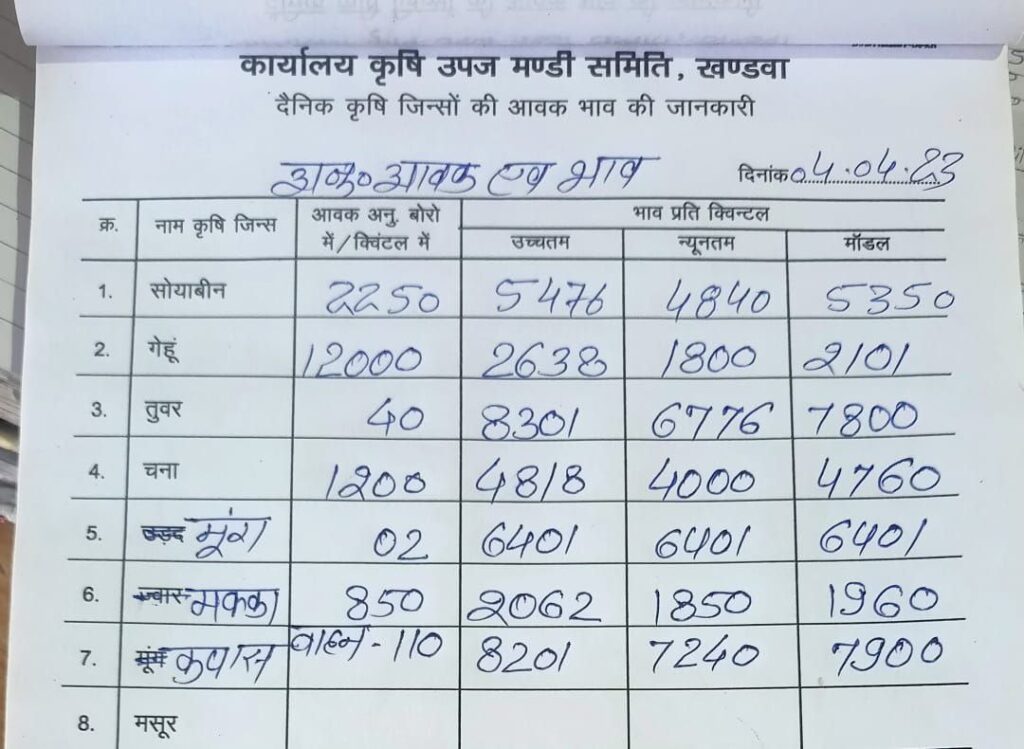 कार्यालय कृषि उपज मण्डी समिति, खण्डवा
दैनिक कृषि जिन्सों की आवक भाव की जानकारी
अनु० आवक एव भाव दिनांक 04.04.23
क्र. नाम कृषि जिन्स आवक अनु. बोरो में/क्विंटल में भाव प्रति क्विन्टल
उच्चतम न्यूनतम मॉडल
1. सोयाबीन 2250 5476 4840 5350
2. गेहूं 12000 2638 1800 2101
3. तुवर 40 8301 6776 7800
4. चना 1200 4818 4000 4760
5. उड़द मूंग 02 6401 6401 6401
6. ज्वार मकका 850 2062 1850 1960
7. मूंग कपास वाहन - 110 8201 7240 7900
8. मसूर